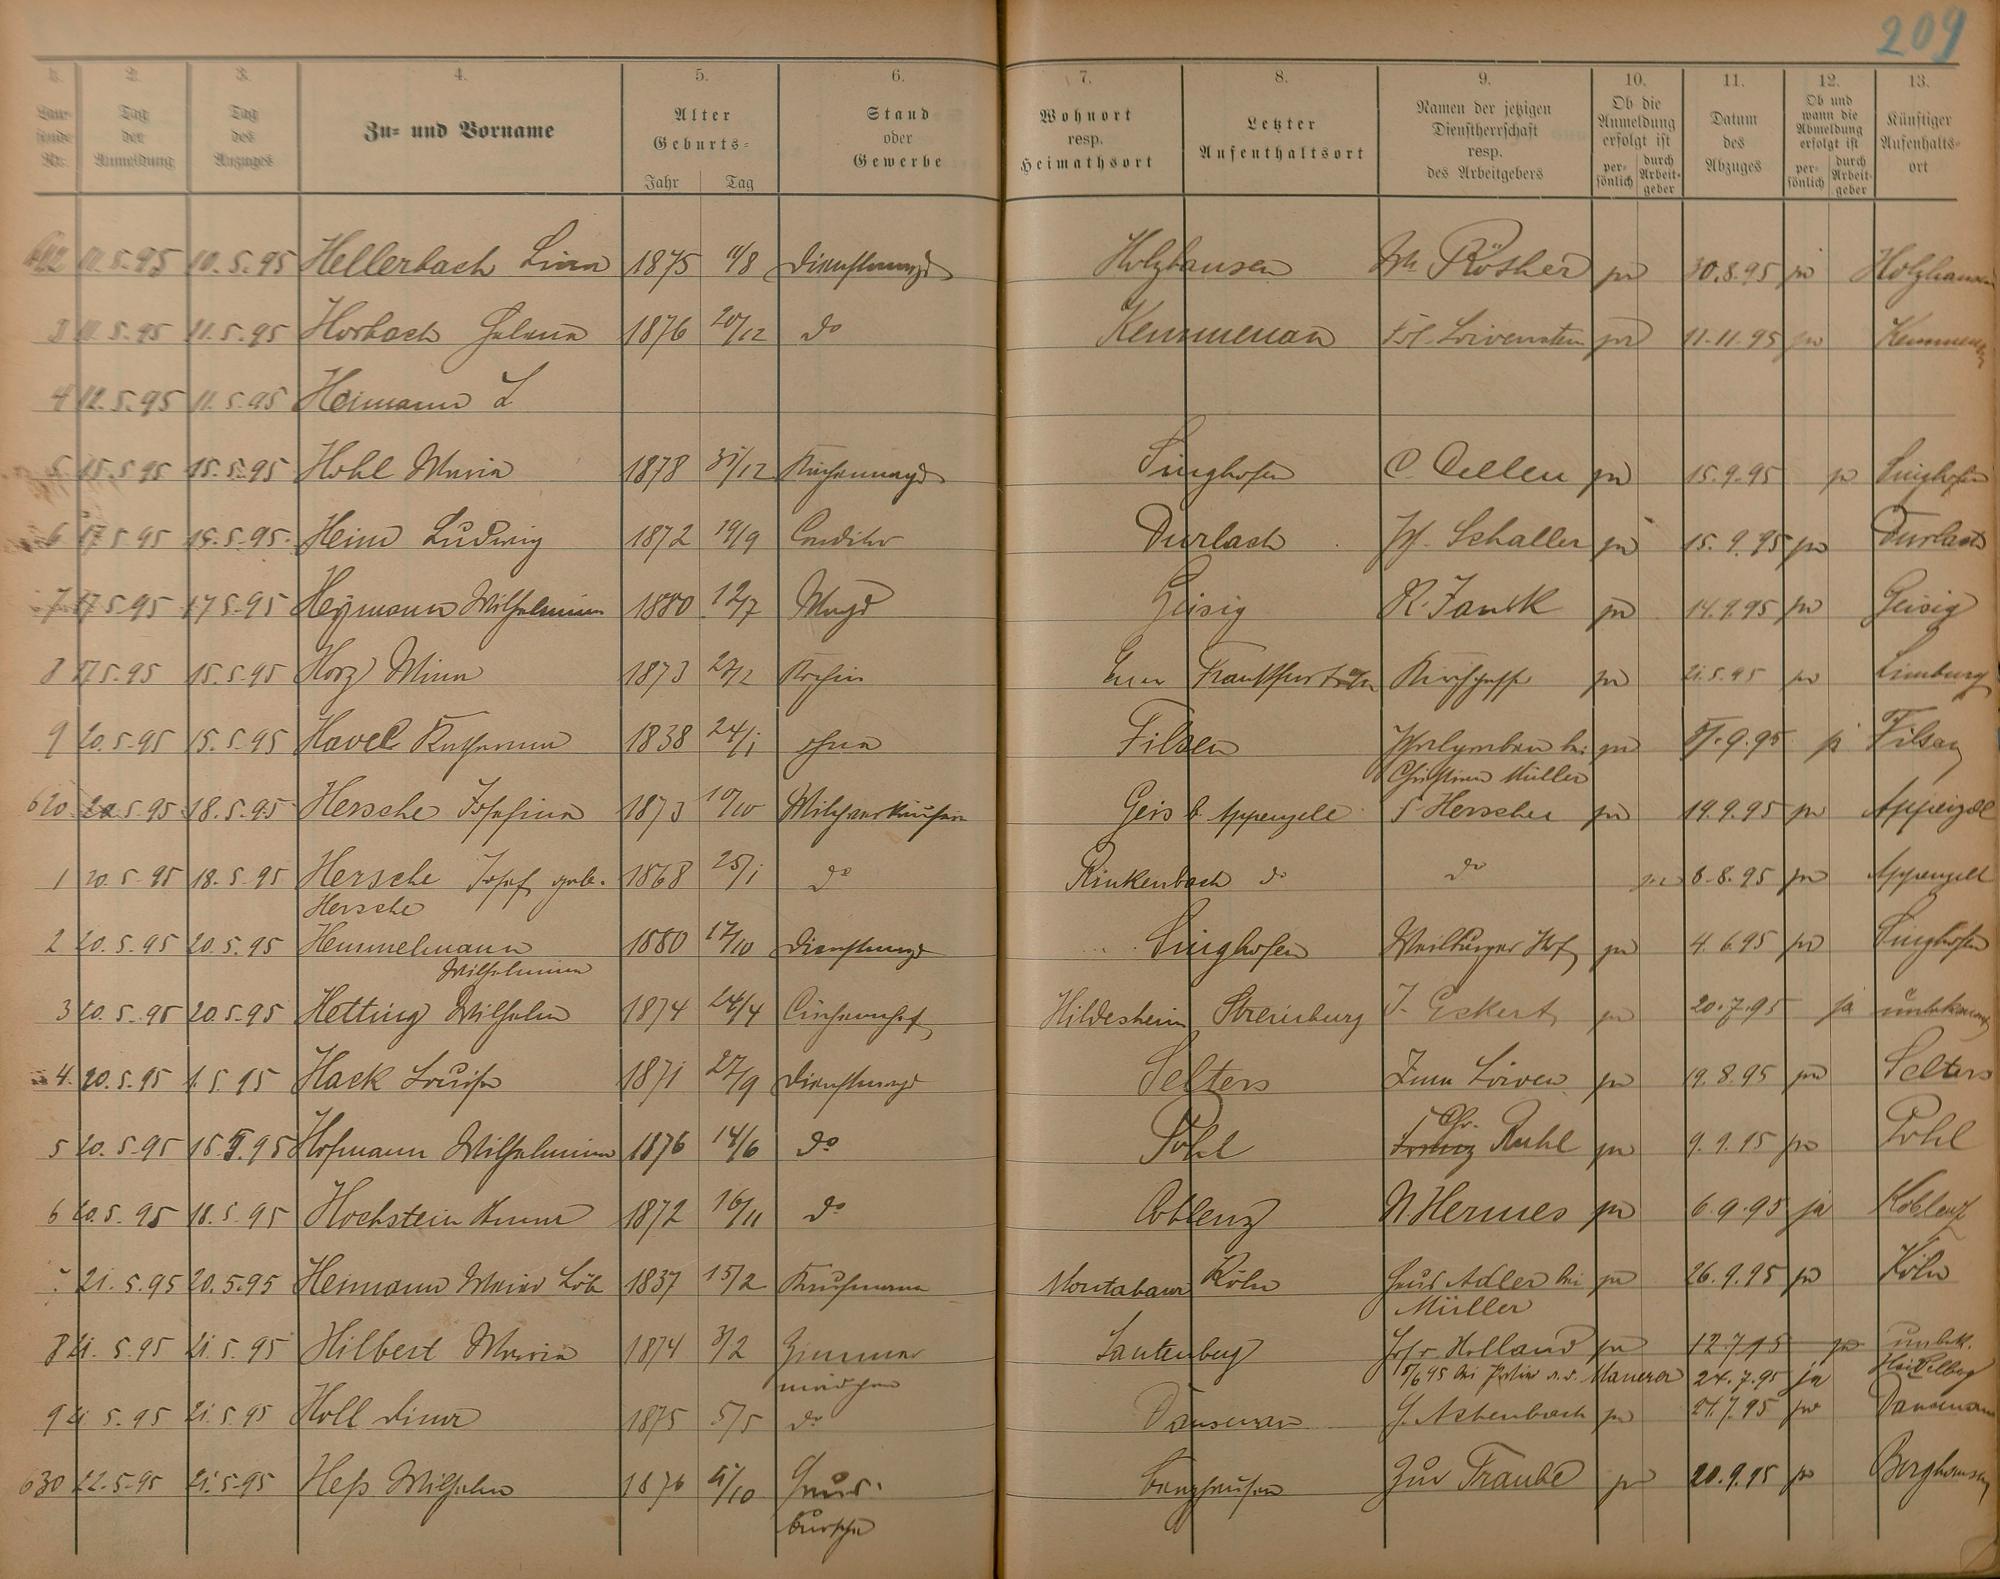 209
1. 2. 3. 4. 5. 6. 7. 8. 9. 10. 11. 12. 13.
Lau-fende Nr. Tag der Anmeldung Tag des Anzuges Zu- und Vorname Alter Geburts- Jahr Tag Stand oder Gewerbe Wohnort resp. Heimathsort Letzter Aufenthaltsort Namen der jetzigen Dienstherrschaft resp. des Arbeitgebers Ob die Anmeldung erfolgt ist per-sönlich durch Arbeit-geber Datum des Abzuges Ob und wann die Abmeldung erfolgt ist per-sönlich durch Arbeit-geber Künftiger Aufenthalts-ort
612 11.5.95 10.5.95 Hellerbach Lina 1875 Dienstmagd Holzhausen Rösher ja 30.8.95 ja Holzhausen
3 11.5.95 11.5.95 Horbach Helena 1876 20/12 do Kemmenau Löwenstein ja 11.11.95 ja Kemmenau
4 12.5.95 11.5.95 Heimann L
5 15.5.95 15.5.95 Hohl Maria 1878 31/12 Küchenmagd Singhofen ja 15.9.95 ja Singhofen
6 17.5.95 15.5.95. Heim Ludwig 1872 19/9 Conditor Durlach Schaller ja 15.9.95 ja Durlach
7 17.5.95 17.5.95 Heymann Wilhelmine 1880 12/7 Magd Geisig ja 14.9.95 ja Geisig
8 17.5.95 15.5.95 Horz Minna 1873 27/2 Köchin Frankfurt a/m ja 21.5.95 ja Limburg
9 20.5.95 15.5.95 Havel Katharina 1838 24/1 ohne Filsen bei ja .9.95 ja Filsen
Christian Müller
620 20.5.95 18.5.95 Hersche Josefina 1873 10/10 Geis b. Appenzell Herscher ja 19.9.95 ja Appenzell
1 20.5.95 18.5.95 Hersche Josef geb. 1868 25/1 do Rinkenbach do do ja 8.8.95 ja Appenzell
Hersche
2 20.5.95 20.5.95 Hemmelmann 1880 17/10 Dienstmagd Singhofen Weilburger Hof ja 4.6.95 ja Singhofen
Wilhelmine
3 20.5.95 20.5.95 Hetting Wilhelm 1874 24/4 Hildesheim J. Eckert ja 20.7.95 ja unbekannt
4. 20.5.95 1.5.95 Hack Louise 1871 27/9 Dienstmagd Selters Zum Löwen ja 19.8.95 ja Selters
Chr.
5 20.5.95 18.5.95 Hofmann Wilhelmine 1876 14/6 do Pohl Ruhl ja 9.9.95 ja Pohl
6 20.5.95 18.5.95 Hochstein Anna 1872 16/11 do Coblenz N Hermes ja 6.9.95 ja Koblenz
21.5.95 20.5.95 Heimann Meier Löb 1837 15/2 Kaufmann Montabaur Köln Haus Adler bei ja 26.9.95 ja Köln
Müller
8 21.5.95 21.5.95 Hilbert Maria 1874 3/2 Zimmer Lautenberg Hof v. Holland ja 12.7.95 ja unbek.
mädchen bei 24.7.95 ja Heidelberg
9 21.5.95 21.5.95 Holl Lina 1875 5/5 do Dausenau Achenbach ja 21.7.95 ja Dausenau
630 22.5.95 21.5.95 Heß Wilhelm 1876 Haus- Berghausen Zur Traube ja 20.9.95 ja Berghausen
bursche